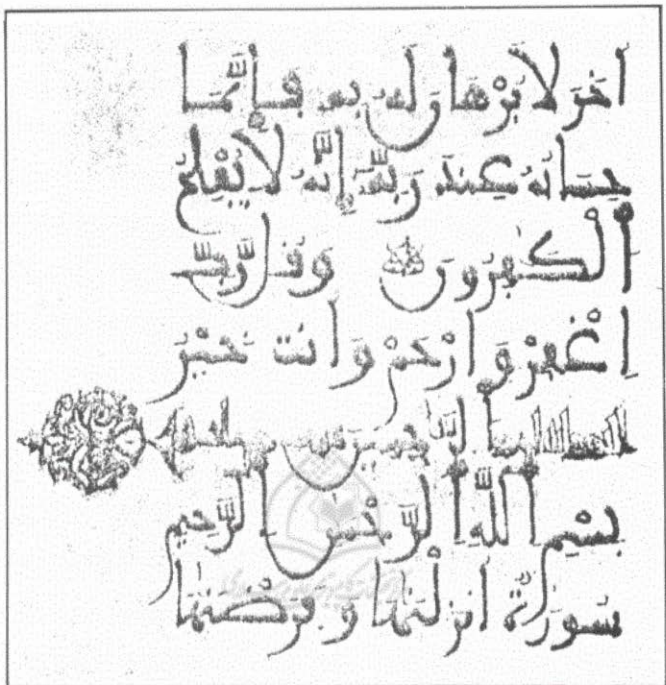 اخَرَ لَا بُرْهَٰنَ لَهُ بِهِ فَإِنَّمَا
حِسَابُهُ عِندَ رَبِّهِ إِنَّهُ لَا يُفْلِحُ
اُلْكَٰفِرُونَ وَقُل رَّبِّ
اِغْفِرْ وَارْحَمْ وَأَنتَ خَيْرُ
الرَّٰحِمِينَ
بِسْمِ اللَّهِ الرَّحْمَٰنِ الرَّحِيمِ
سُورَةٌ أَنزَلْنَٰهَا وَفَرَضْنَٰهَا